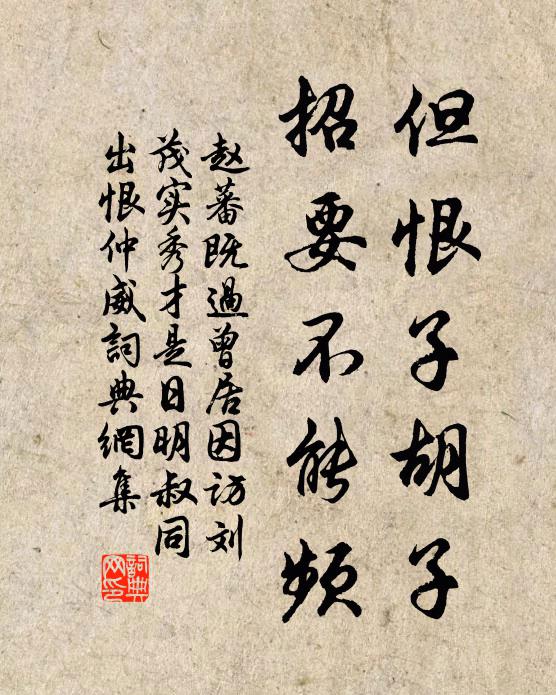 但恨子胡子
招要不能频
赵蕃既過曾居因访刘
茂实秀才是日明叔同
出恨仲威詞典網集
詞典
网印